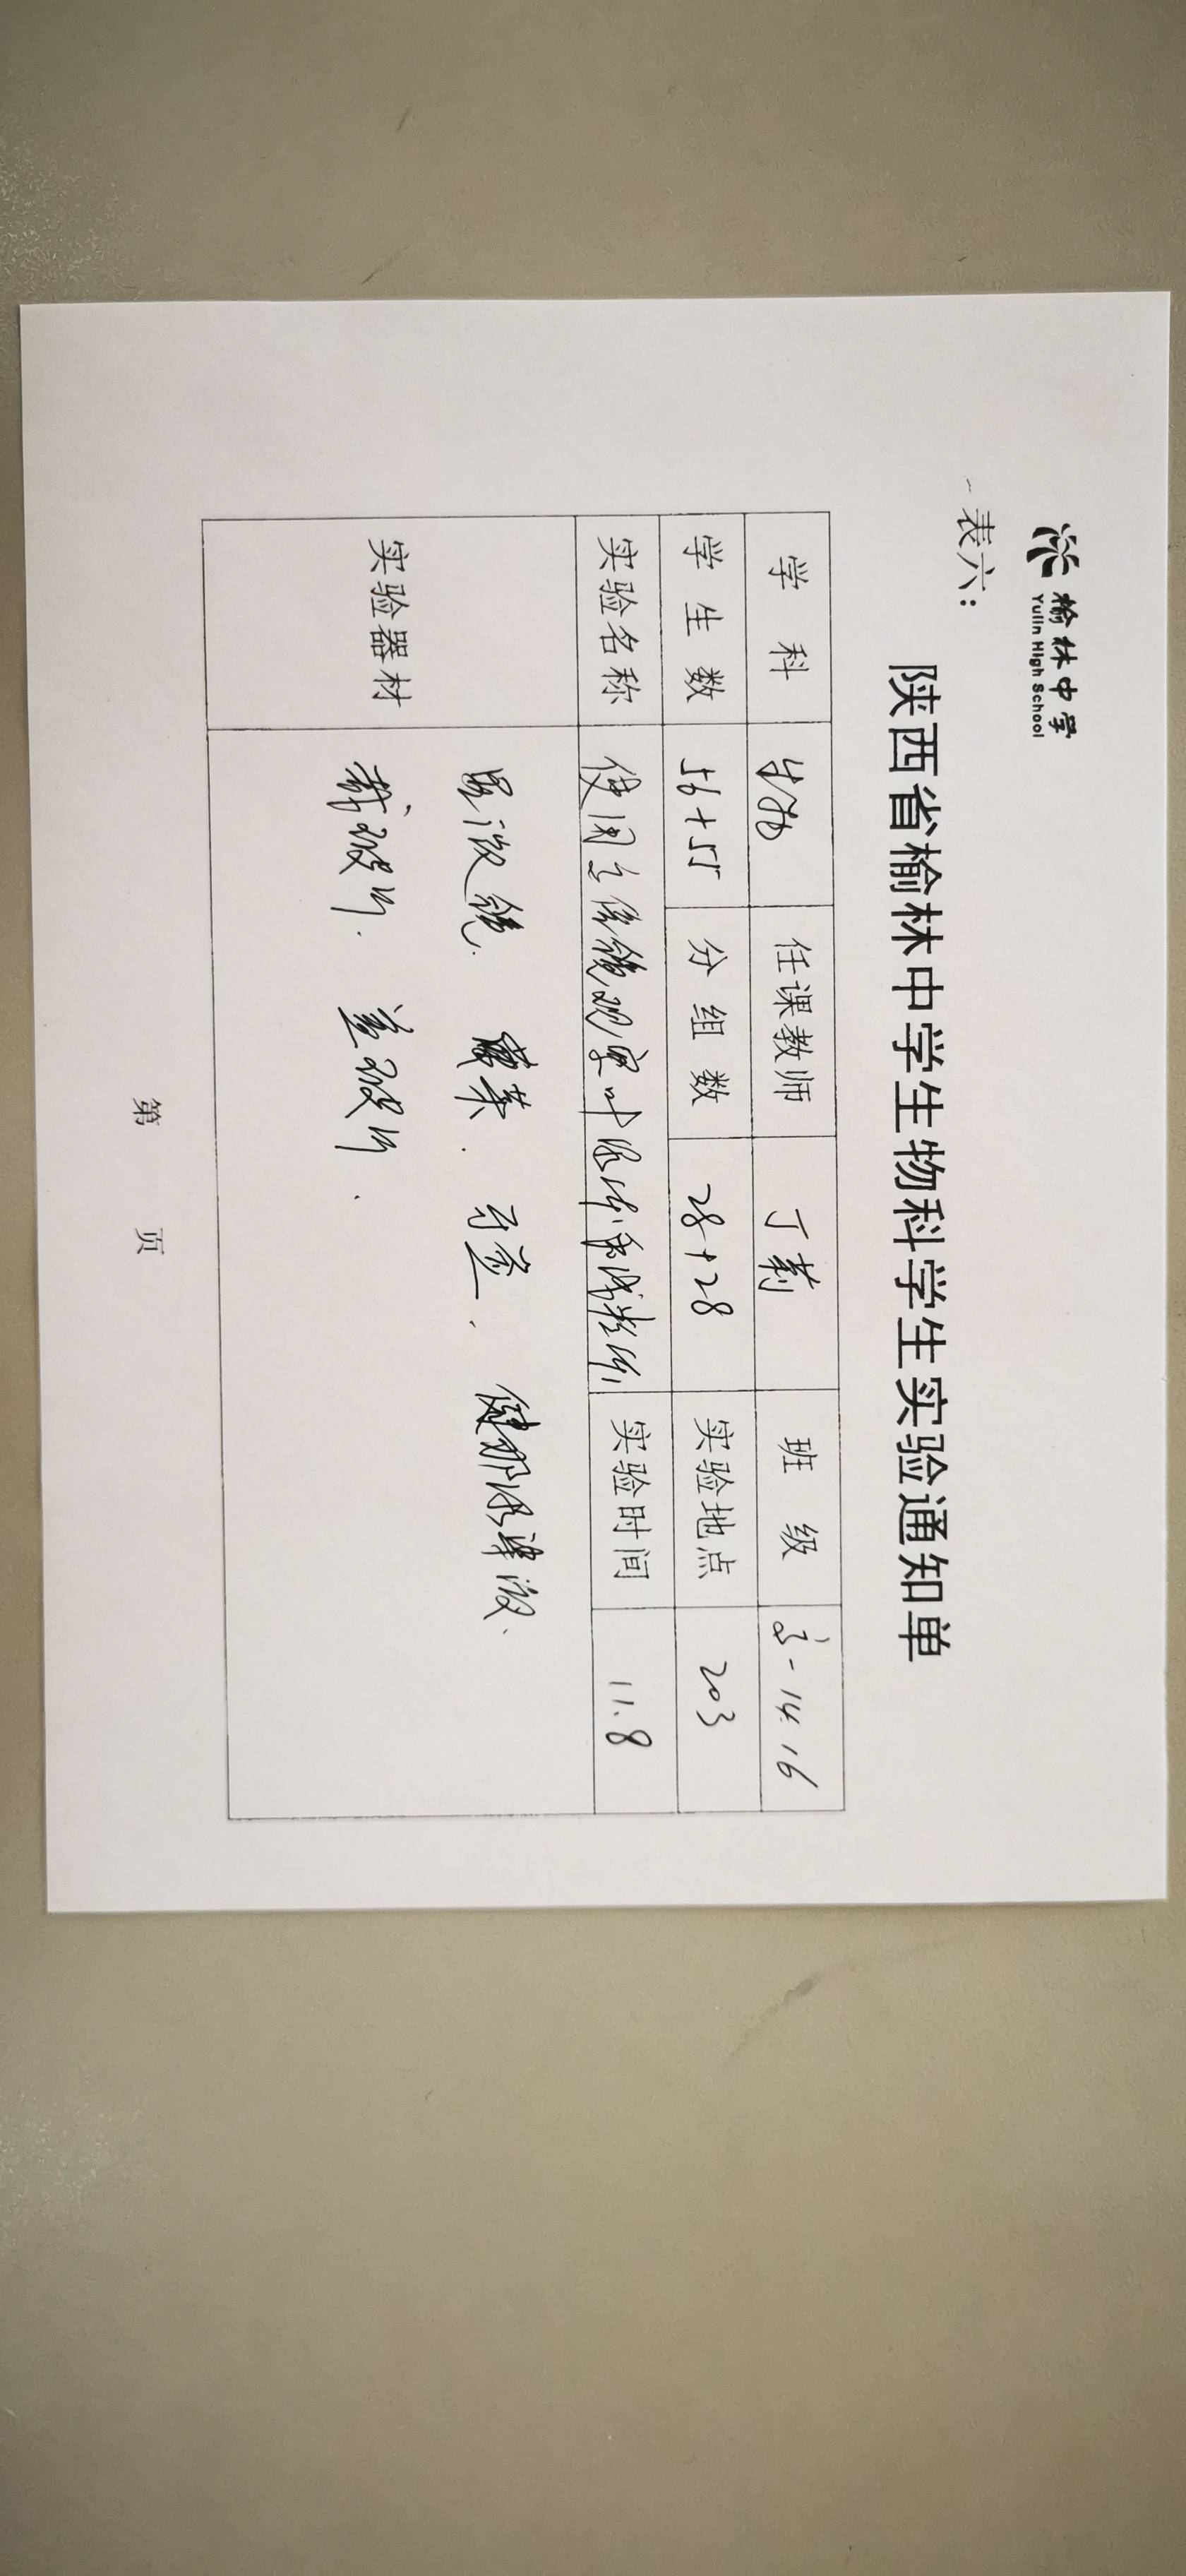 榆林中学
Yulin High School
表六:
陕西省榆林中学生物科学生实验通知单
学 科 生物 任课教师 丁莉 班 级 高一 14. 16
学 生 数 56+55 分 组 数 28+28 实验地点 203
实验名称 使用高倍镜观察叶绿体和线粒体 实验时间 11.8
实验器材 显微镜. 藓类. 健那绿染液.
载玻片. 盖玻片.
第 页